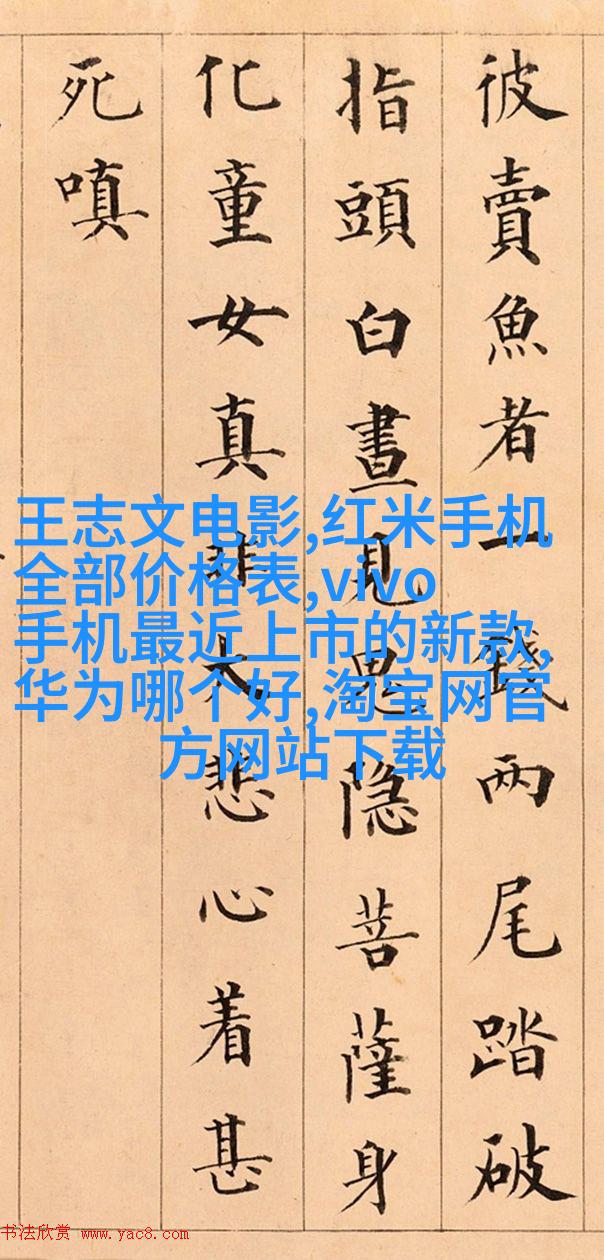 彼賣魚者一錢兩尾踏破
指頭白晝見鬼隐菩薩身
化童女真非大悲心着甚
死嗔
王志文电影,红米手机
全部价格表,vivo
手机最近上市的新款,
华为哪个好,淘宝网官
方网站下载
书法欣赏 www.yac8.com